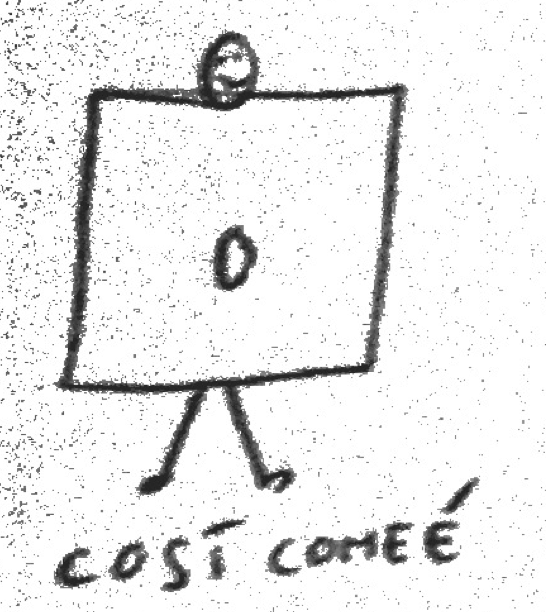 0
COSĪ COMEÉ